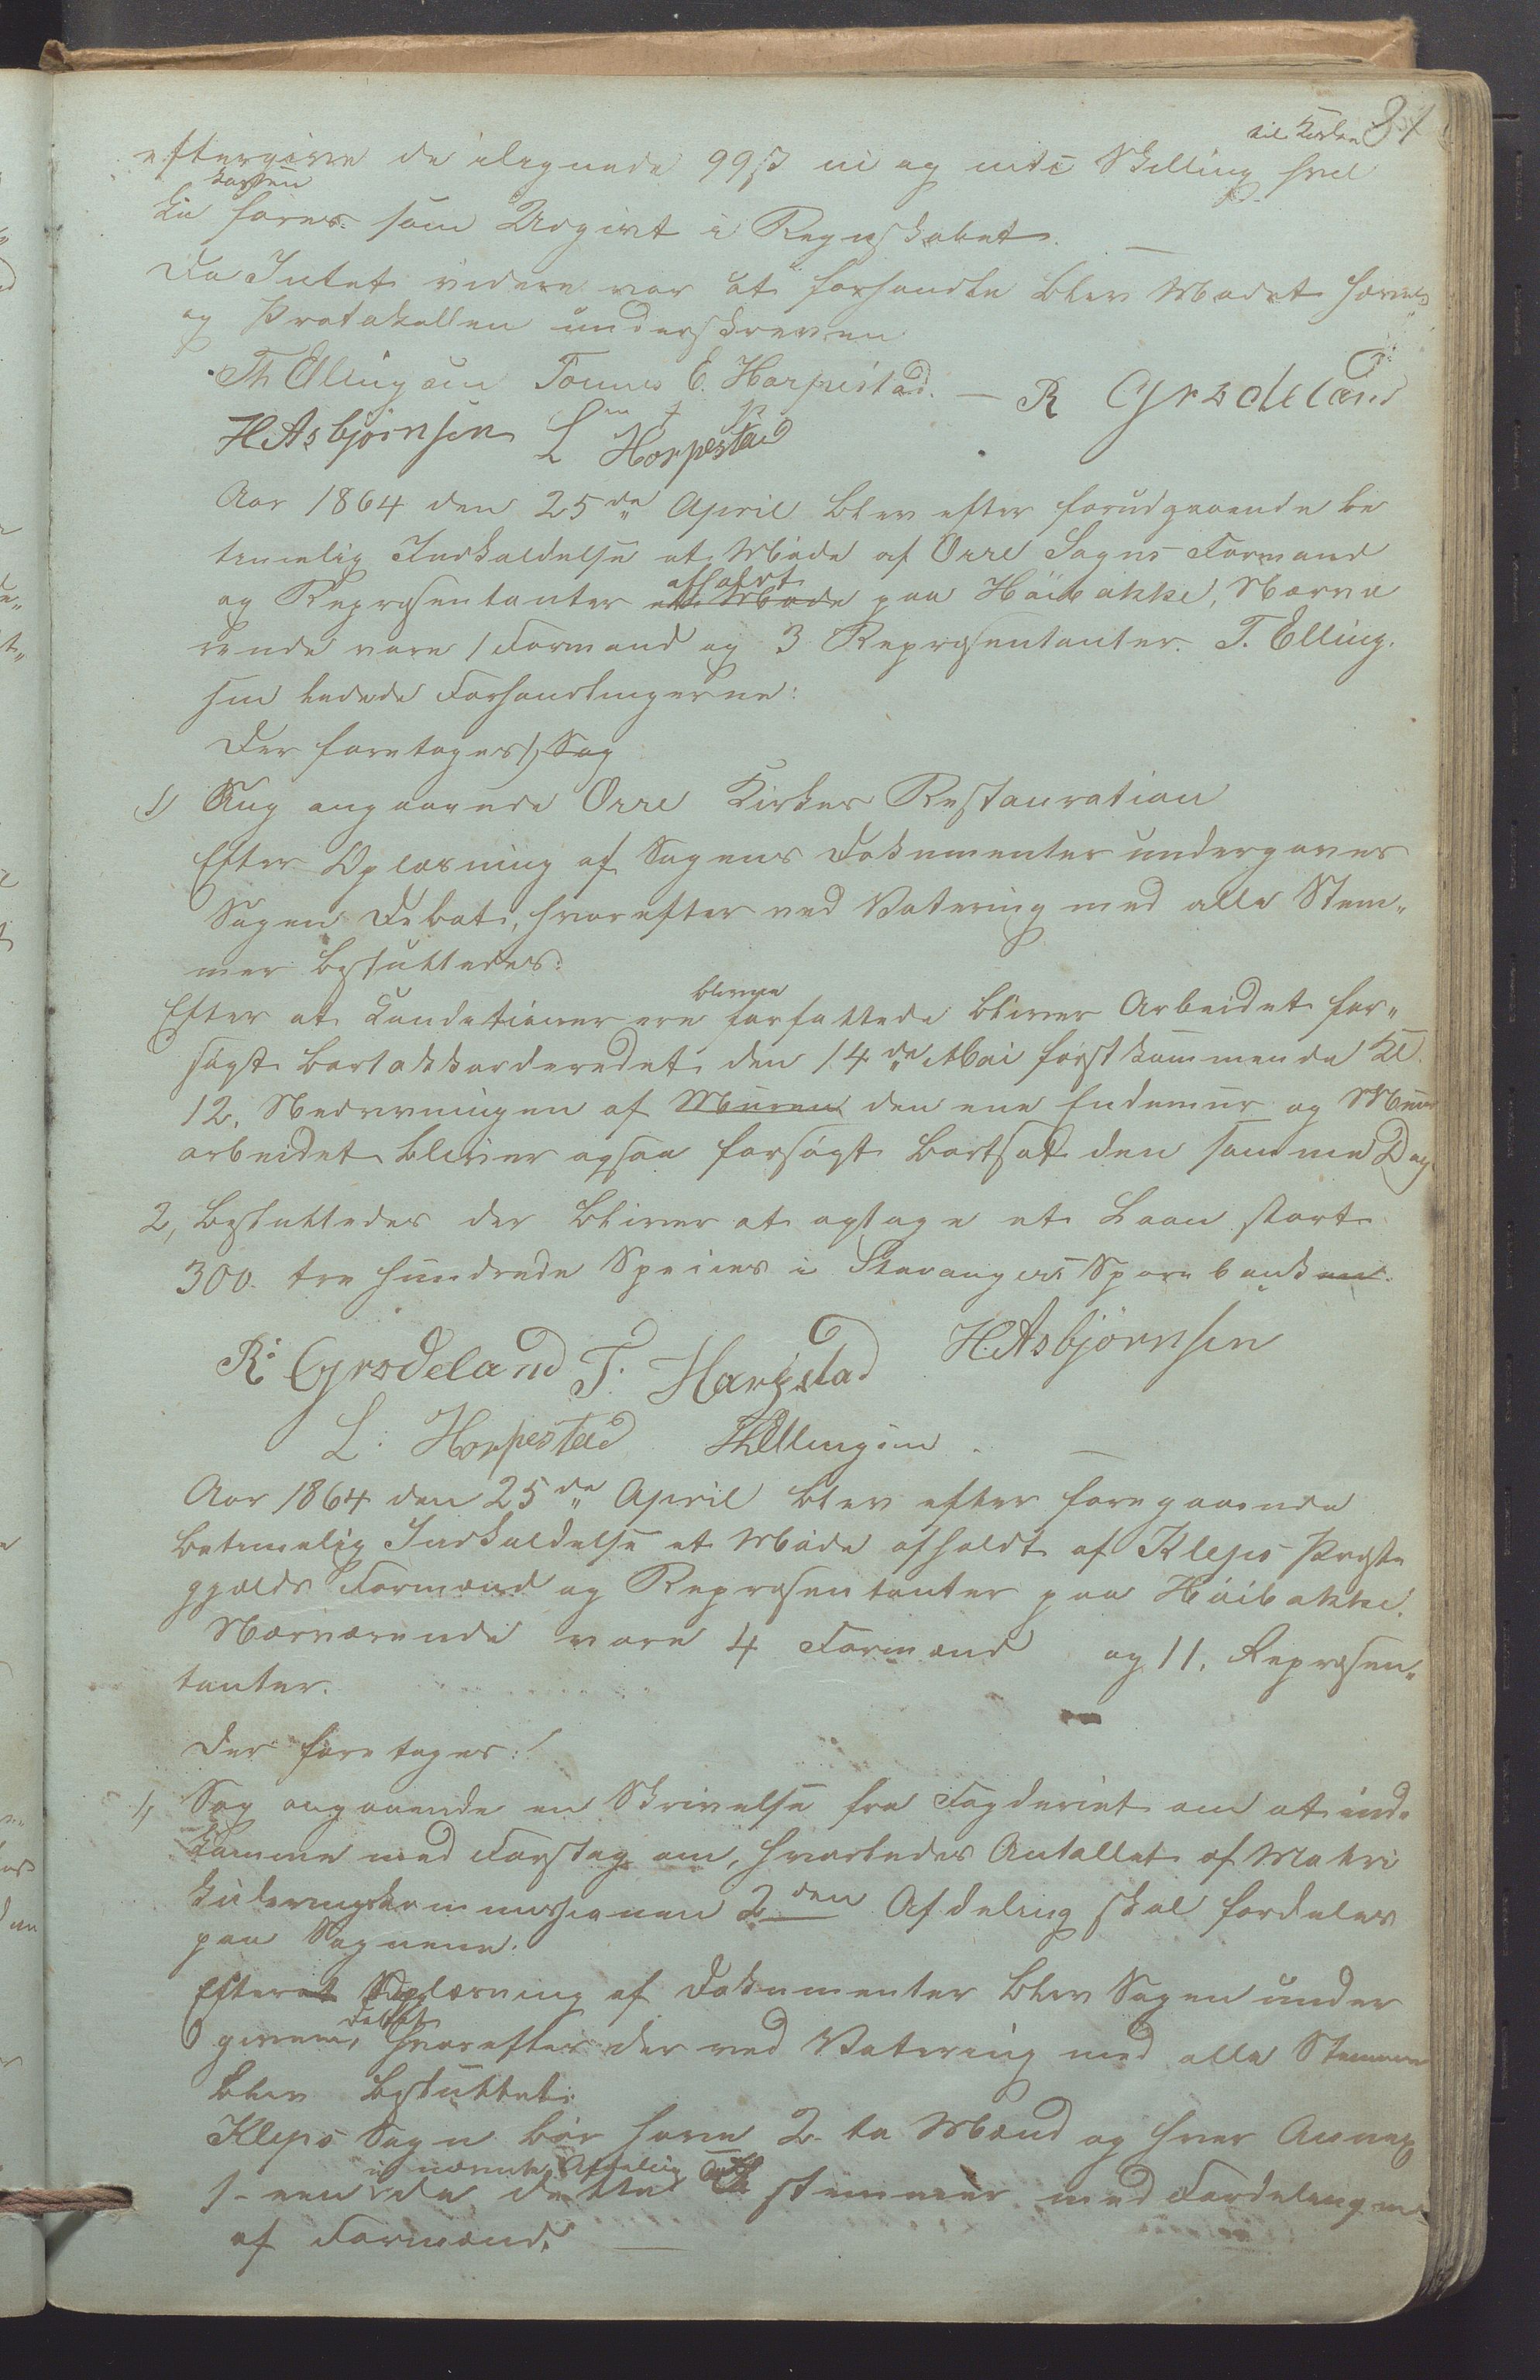 81
til Kirken
eftergive de ilignede 99 ß ni og niti Skilling hvil
kassen
ke føres som Udgivt i Regnskabet. —
Da Intet videre var at forhandle blev Mødet hævet
og Protokollen underskreven
Th Ellingsen Tønnes E. Harpestad. — R Grødeland
H. Asbjørnsen L Horpestad
Aar 1864 den 25de April blev efter forudgaaende be
timelig Indkaldelse et Møde af Orre Sogns Formænd
afholdt
og Repræsentanter et Møde paa Høibakke, Nærvæ
rende vare 1 Formand og 3 Repræsentanter. T. Elling.
sen ledede Forhandlingerne:
Der foretoges 1) Sag
1) Sag angaaende Orre Kirkes Restauration
Efter Oplæsning af Sagens Dokumenter undergaves
Sagen Debat, hvorefter ved Votering med alle Stem„
mer besluttedes:
blevne
Efter at Konditioner ere forfattede bliver Arbeidet for„
søgt bortakkorderedet den 14de Mai førstkommende Kl.
12, Nedrivningen af Muren den ene Endemur og Muur
arbeidet bliver ogsaa forsøgt bortsat den samme Dag
2, besluttedes der bliver at optage et Laan stort
300 tre hundrede Specier i Stavangers Sparebanken.
R. Grødeland T. Harpestad H. Asbjørnsen
L. Horpestad Th Ellingsen. —
Aar 1864 den 25de April blev efter foregaaende
betimelig Indkaldelse et Møde afholdt af Kleps Præste
gjælds Formænd og Repræsentanter paa Høibakke.
Nærværende vare 4 Formænd og 11. Repræsen„
tanter.
Der foretoges:
1, Sag angaaende en Skrivelse fra Fogderiet om at ind„
komme med Forslag om, hvorledes Antallet af Matri
kuleringskommissionen 2den Afdeling skal fordeles
paa Sognene.
Efter at Oplæsning af Dokumenter blev Sagen under
debat
given, hvorefter der ved Votering med alle Stemmer
blev besluttet:
Kleps Sogn bør have 2 to Mænd og hver Annex
i nævnte Afdeling
1 een da dette stemmer med Fordelingen
af Formænd. —